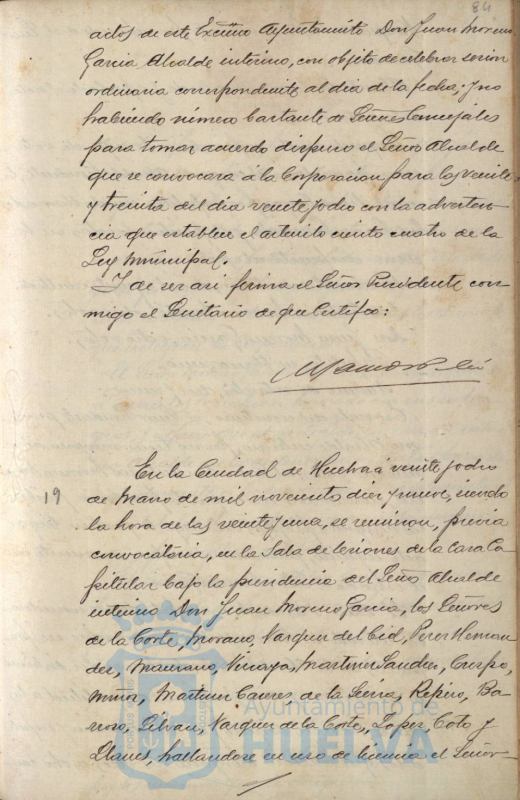 84
actos de este Excmo Ayuntamiento Don Juan Moreno
Garcia Alcalde interino, con objeto de celebrar sesion
ordinaria correspondiente al dia de la fecha; y no
habiendo número bastante de Señores Concejales
para tomar acuerdo dispuso el Señor Alcalde
que se convocara á la Corporacion para las veinte
y treinta del dia veinte y ocho con la adverten-
cia que establece el articulo ciento cuatro de la
Ley Municipal.
Y de ser asi firma el Señor Presidente con-
migo el Secretario de que Certifico:
19
En la Ciudad de Huelva á veinte y ocho
de Marzo de mil novecientos diez y nueve, siendo
la hora de las veinte y una, se reunieron, previa
convocatoria, en la Sala de Sesiones de la Casa Ca-
pitular bajo la presidencia del Señor Alcalde
interino Don Juan Moreno Garcia, los Señores
de la Corte, Morano, Vazquez del Cid, Perez Hernan-
dez, Manzano, Vizcaya, Martinez Sanchez, Crespo,
Muñoz, Martinez Caceres, de la Seria, Repiso, Ba-
rroso, Galvan, Vazquez de la Corte, Lopez, Coto y
Llanes, hallandose en uso de licencia el Señor
Ayuntamiento de
HUELVA